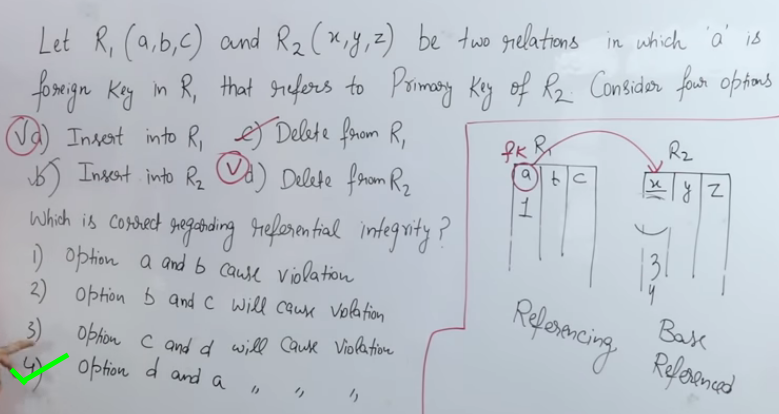 Let R1 (a,b,c) and R2 (x,y,z) be two relations in which 'a' is
foreign key in R1 that refers to Primary Key of R2. Consider four options
a) Insert into R1 c) Delete from R1
b) Insert into R2 d) Delete from R2
Which is correct regarding referential integrity?
1) Option a and b cause violation
2) Option b and c will cause violation
3) Option c and d will cause violation
4) Option d and a " " "
fk R1 R2
a b c x y z
1
3
4
Referencing Base
Referenced